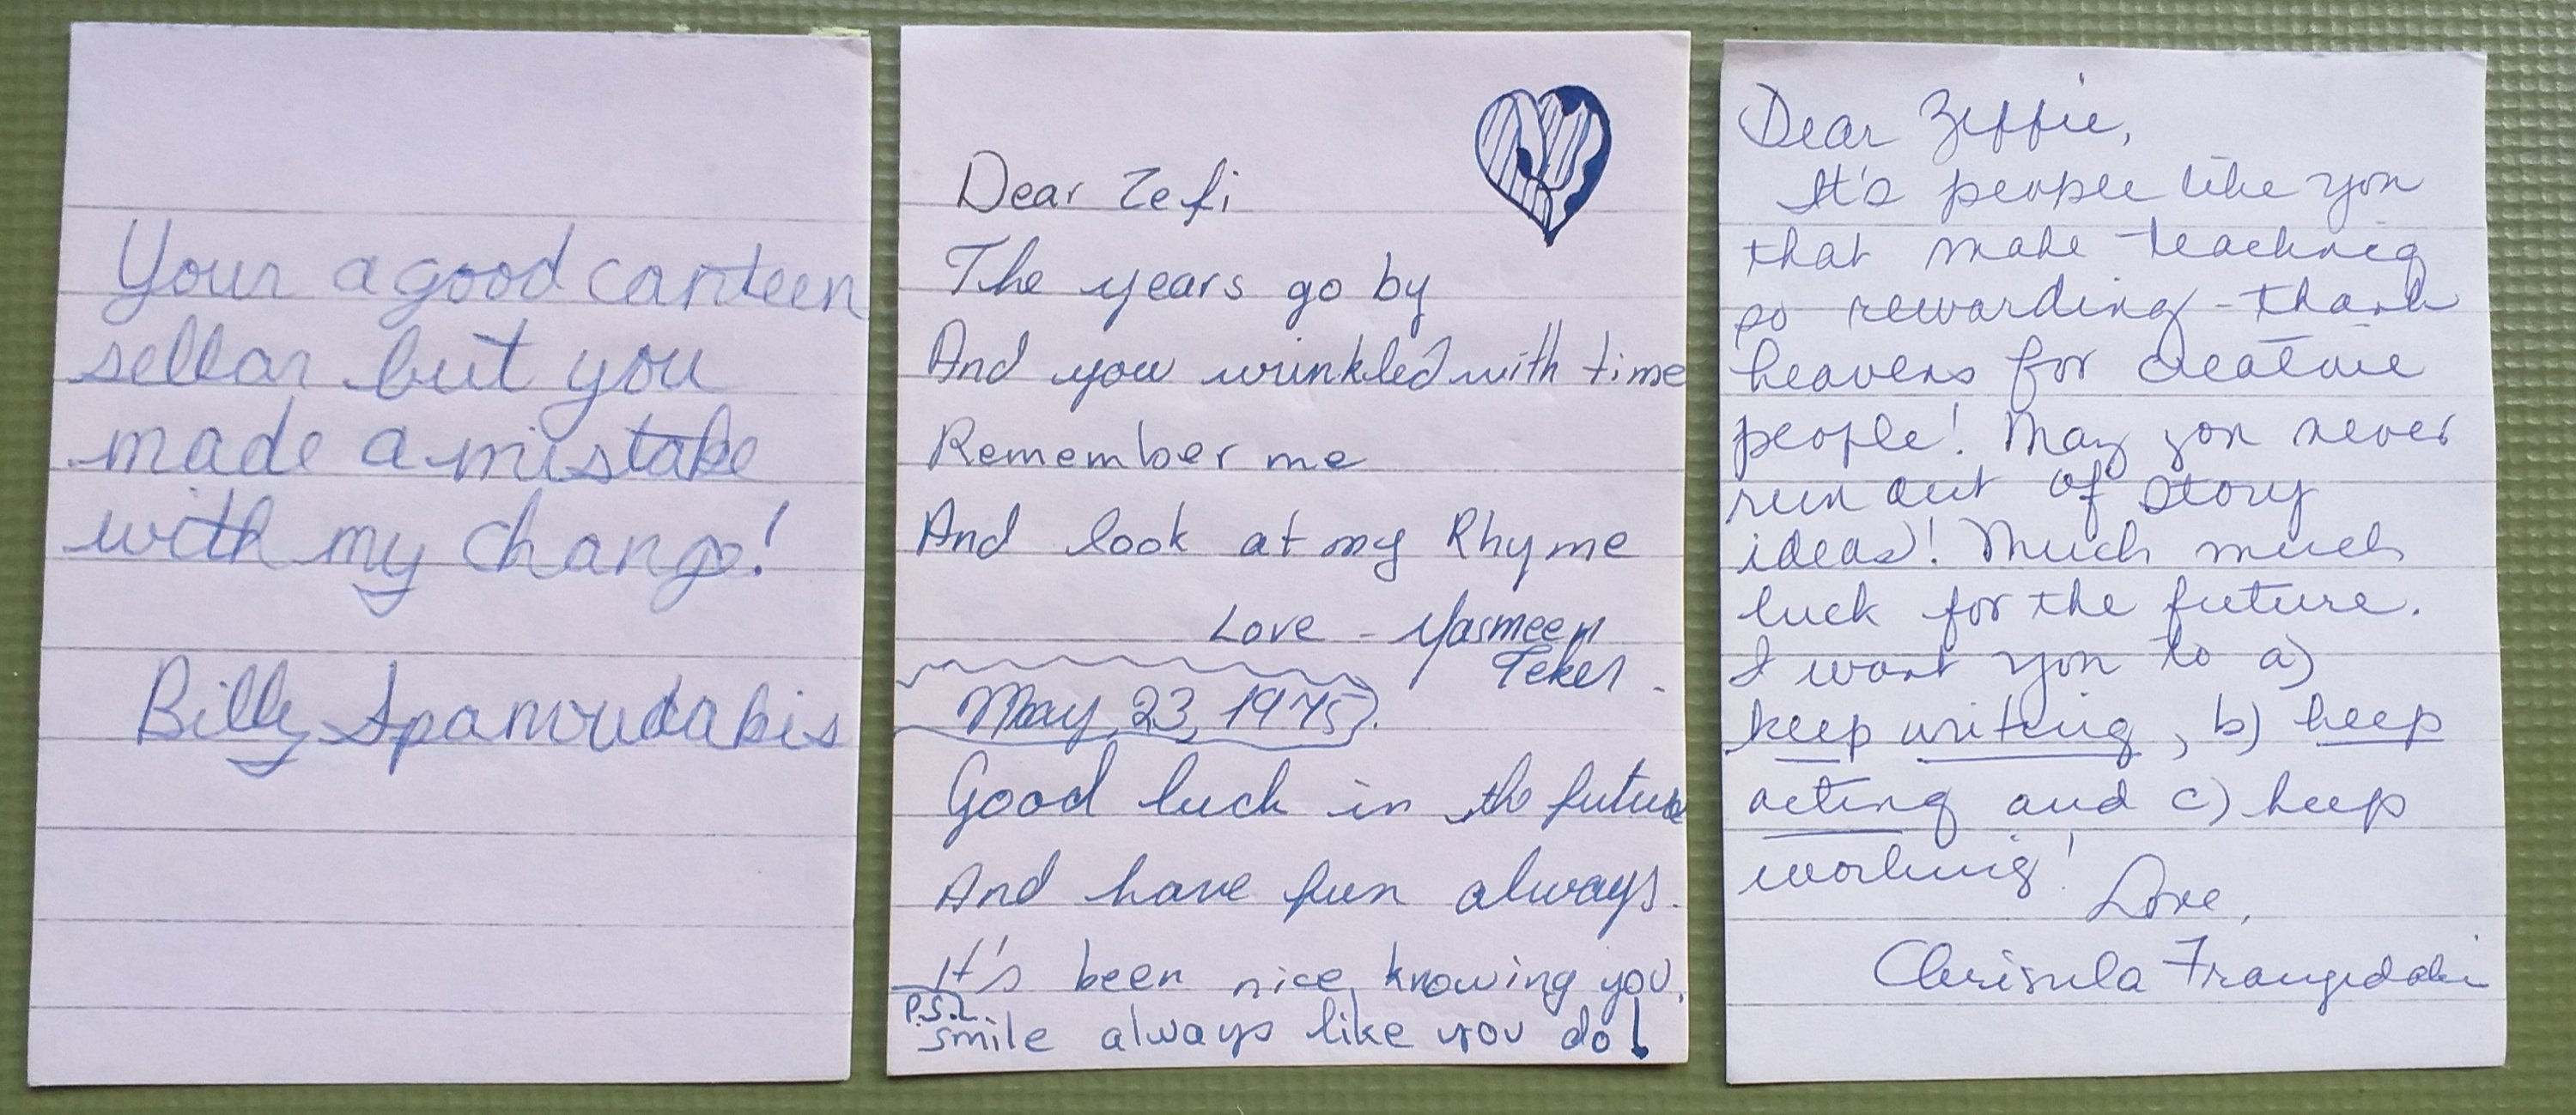 Your a good canteen
sellar but you
made a mistake
with my change!
Billy Spanoudakis
Dear Zefi
The years go by
And you wrinkled with time
Remember me
And look at my Rhyme
Love - Yasmeen
Teker.
May, 23, 1975.
Good luck in the future
And have fun always.
It's been nice knowing you.
P.S.
smile always like you do!
Dear Zeffie,
It's people like you
that make teaching
so rewarding - thank
heavens for creative
people! May you never
run out of story
ideas! Much much
luck for the future.
I want you to a)
keep writing, b) keep
acting and c) keep
working!
Love,
Chrisula Frangedaki